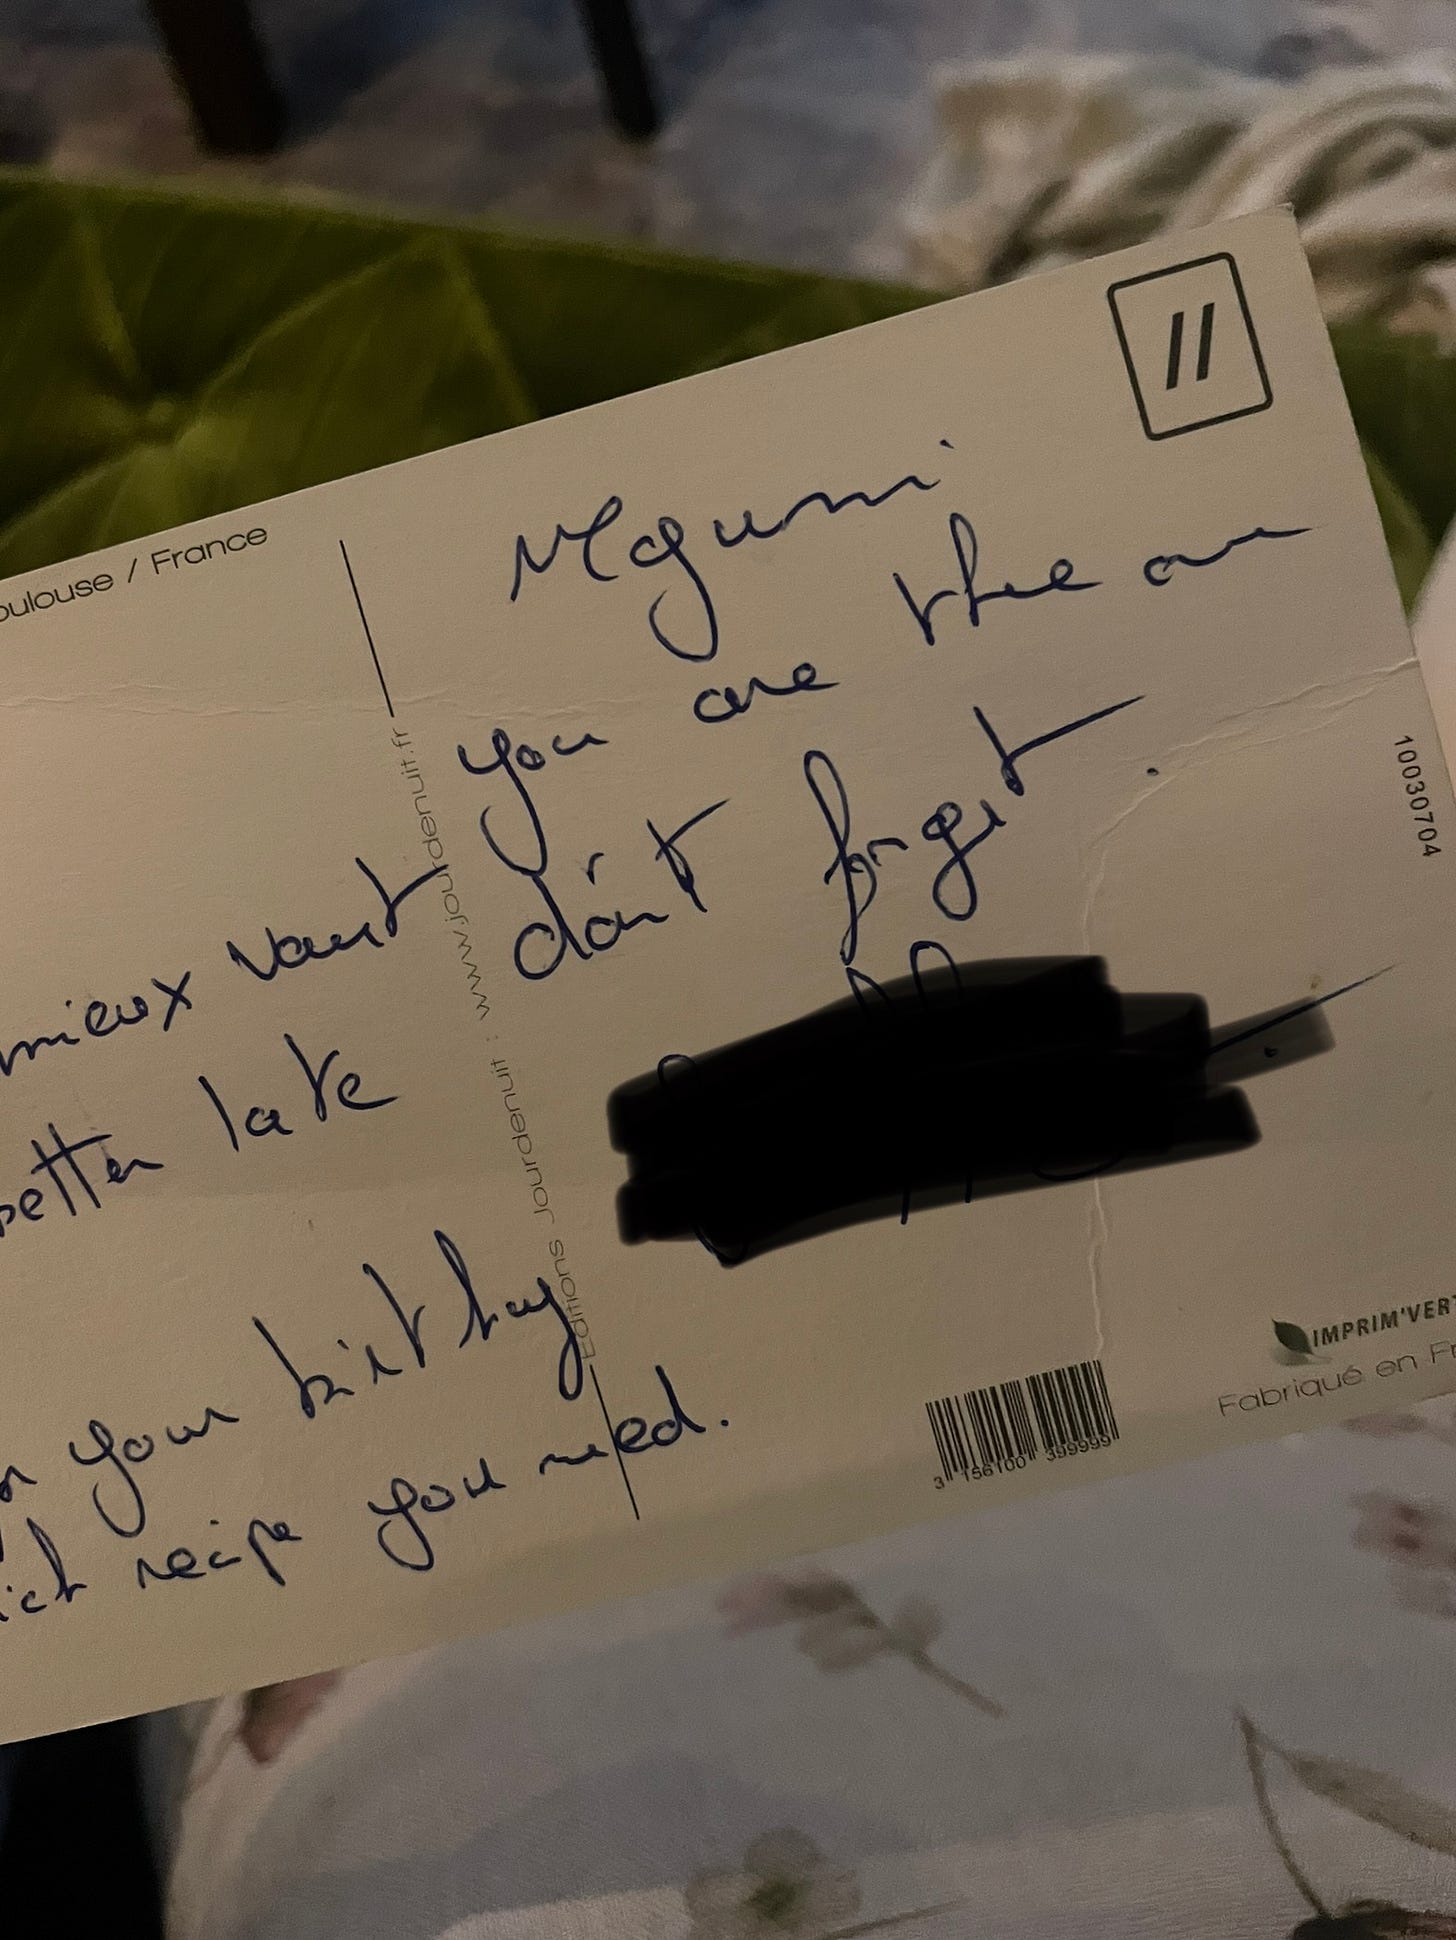 oulouse / France
mieux vaut
better late
your birthay
recipe you need.
Editions Jourdenuit : www.jourdenuit.fr
//
Megumi
you are the one
don't forget.
10030704
IMPRIM'VERT
Fabriqué en Fr
3 156100 399999